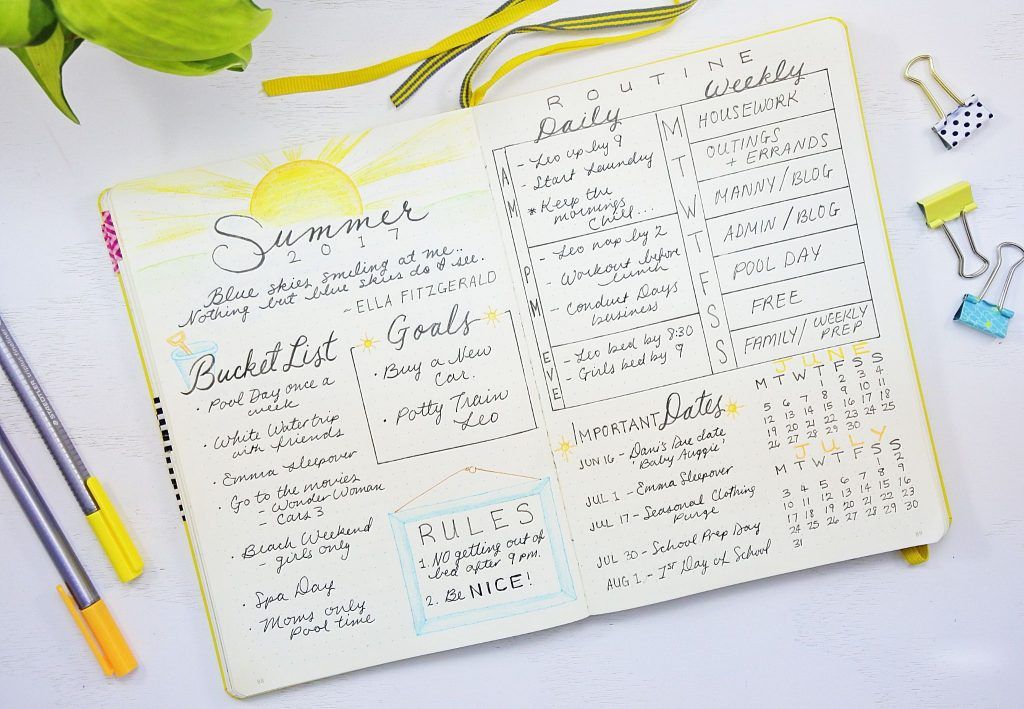 Summer
2017
Blue skies smiling at me..
Nothing but blue skies do I see.
~ELLA FITZGERALD
Bucket List
• Pool Day once a
week
• White Water trip
with friends
• Emma sleepover
• Go to the movies
- Wonder Woman
- Cars 3
• Beach Weekend
- girls only
• Spa Day
• Moms only
Pool time
Goals
• Buy a New
Car.
• Potty Train
Leo
RULES
1. NO getting out of
bed after 9 pm.
2. Be NICE!
98
ROUTINE
Daily
AM
- Leo up by 9
- Start Laundry
* Keep the
mornings
Chill...
PM
- Leo nap by 2
- Workout before
lunch
- Conduct Days
business
EVE
- Leo bed by 8:30
- Girls bed by 9
Weekly
M HOUSEWORK
T OUTINGS
+ ERRANDS
W MANNY/BLOG
T ADMIN/BLOG
F POOL DAY
S FREE
S FAMILY/WEEKLY
PREP
IMPORTANT Dates
JUN 16 - Dani's Due date
'Baby Auggie'
JUL 1 - Emma Sleepover
JUL 17 - Seasonal Clothing
Purge
JUL 30 - School Prep Day
AUG 1. - 1st Day of School
JUNE
M T W T F S S
1 2 3 4
5 6 7 8 9 10 11
12 13 14 15 16 17 18
19 20 21 22 23 24 25
26 27 28 29 30
JULY
M T W T F S S
1 2
3 4 5 6 7 8 9
10 11 12 13 14 15 16
17 18 19 20 21 22 23
24 25 26 27 28 29 30
31
99
STAEDTLER